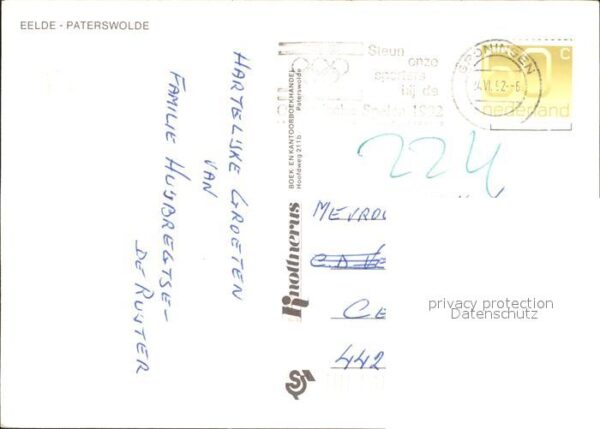 EELDE - PATERSWOLDE
HARTELIJKE GROETEN
VAN
FAMILIE HUIJBREGTSE-
DE RUIJTER
BOEK EN KANTOORBOEKHANDEL
Hoofdweg 211b Paterswolde
Knottnerus
Steun
onze
sporters
bij de
Spelen 1992
GRONINGEN
60 c
nederland
224
MEVROU
CE
442
privacy protection
Datenschutz